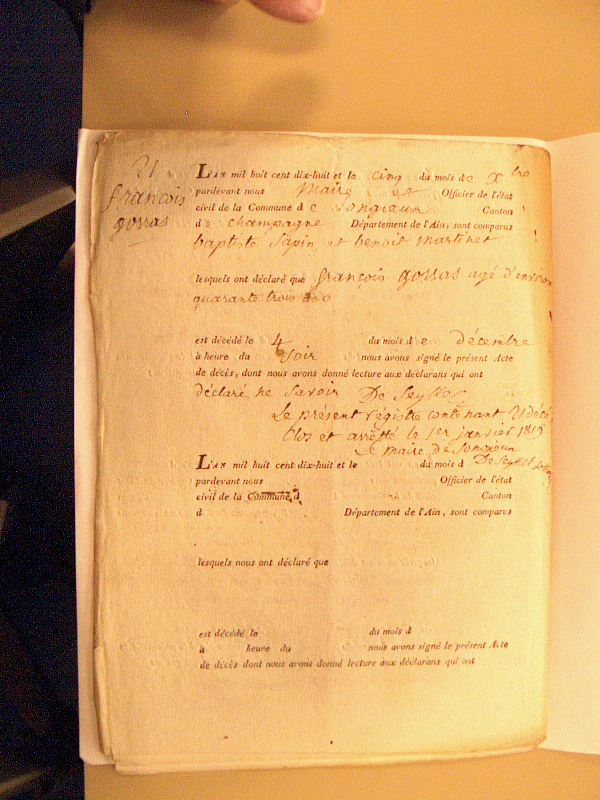 21
françois
gorras
LAN mil huit cent dix-huit et le cinq du mois de Xbre
pardevant nous Maire et Officier de l'état
civil de la Commune de Songieux Canton
de champagne Département de l'Ain, sont comparus
baptiste Sapin et benoit martinet
lesquels ont déclaré que françois gorras agé d'environ
quarante trois ans
est décédé le 4 du mois de décembre
à heure du soir nous avons signé le présent Acte
de décès, dont nous avons donné lecture aux déclarans qui ont
déclaré ne savoir De Seyssel
Le présent registre contenant 21 décès
Clos et arretté le 1er janvier 1819
Le maire de Songieux
De Seyssel
LAN mil huit cent dix-huit et le du mois d
pardevant nous Officier de l'état
civil de la Commune d Canton
d Département de l'Ain, sont comparus
lesquels nous ont déclaré que
est décédé le du mois d
à heure du nous avons signé le présent Acte
de décès dont nous avons donné lecture aux déclarans qui ont